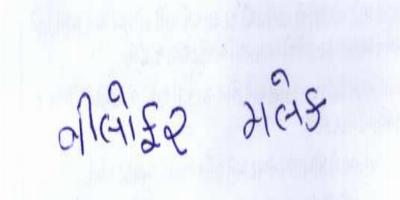 નીલોફર મલેક